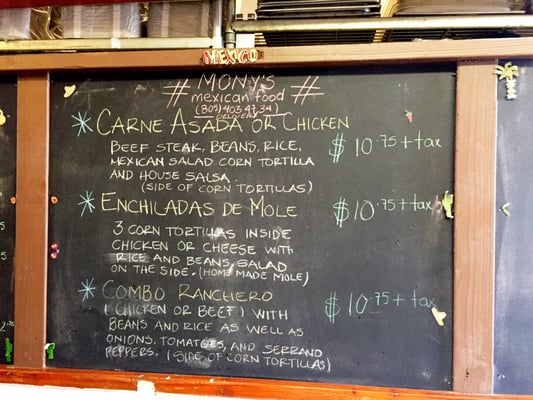 MEXICO
# MONY'S #
mexican food
(805) 403 47 34)
DELIVERY
* CARNE ASADA OR CHICKEN
BEEF STEAK, BEANS, RICE, $10.75 + tax
MEXICAN SALAD CORN TORTILLA
AND HOUSE SALSA.
(SIDE OF CORN TORTILLAS)
* ENCHILADAS DE MOLE $10.75 + tax
3 CORN TORTILLAS INSIDE
CHICKEN OR CHEESE WITH
RICE AND BEANS, SALAD
ON THE SIDE. (HOME MADE MOLE)
* COMBO RANCHERO $10.75 + tax
(CHICKEN OR BEEF) WITH
BEANS AND RICE AS WELL AS
ONIONS, TOMATOES, AND SERRANO
PEPPERS. (SIDE OF CORN TORTILLAS)